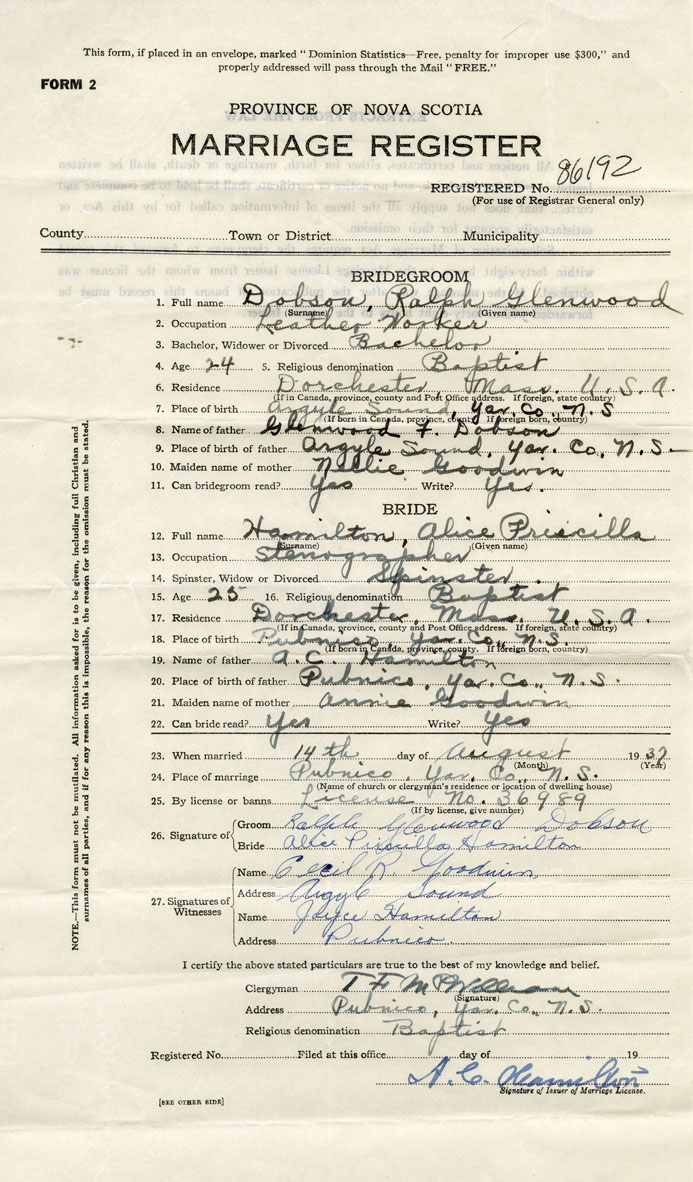 This form, if placed in an envelope, marked "Dominion Statistics—Free, penalty for improper use $300," and
properly addressed will pass through the Mail "FREE."
FORM 2
PROVINCE OF NOVA SCOTIA
MARRIAGE REGISTER
86192
REGISTERED No.
(For use of Registrar General only)
County Town or District Municipality
BRIDEGROOM
1. Full name Dobson, Ralph Glenwood
(Surname) (Given name)
2. Occupation Leather Worker
3. Bachelor, Widower or Divorced Bachelor
4. Age 24 5. Religious denomination Baptist
6. Residence Dorchester, Mass. U.S.A.
(If in Canada, province, county and Post Office address. If foreign, state country)
7. Place of birth Argyle Sound, Yar. Co., N.S
(If born in Canada, province, county. If foreign born, country)
8. Name of father Glenwood F. Dobson
9. Place of birth of father Argyle Sound, Yar. Co., N.S.
10. Maiden name of mother Nellie Goodwin
11. Can bridegroom read? Yes Write? Yes.
BRIDE
12. Full name Hamilton, Alice Priscilla
(Surname) (Given name)
13. Occupation Stenographer
14. Spinster, Widow or Divorced Spinster.
15. Age 25 16. Religious denomination Baptist
17. Residence Dorchester, Mass. U.S.A.
(If in Canada, province, county and Post Office address. If foreign, state country)
18. Place of birth Pubnico, Yar. Co., N.S.
(If born in Canada, province, county. If foreign born, country)
19. Name of father A.C. Hamilton
20. Place of birth of father Pubnico, Yar. Co., N.S.
21. Maiden name of mother Annie Goodwin
22. Can bride read? Yes Write? Yes
23. When married 14th day of August 1937
(Month) (Year)
24. Place of marriage Pubnico, Yar. Co., N.S.
(Name of church or clergyman's residence or location of dwelling house)
25. By license or banns License No. 36989
(If by license, give number)
26. Signature of
Groom Ralph Glenwood Dobson
Bride Alice Priscilla Hamilton
27. Signatures of Witnesses
Name Cecil R. Goodwin
Address Argyle Sound
Name Joyce Hamilton
Address Pubnico.
I certify the above stated particulars are true to the best of my knowledge and belief.
Clergyman T F McWilliam
(Signature)
Address Pubnico, Yar. Co., N.S.
Religious denomination Baptist
Registered No. Filed at this office day of 19
A. C. Hamilton
Signature of Issuer of Marriage License.
[SEE OTHER SIDE]
NOTE.—This form must not be mutilated. All information asked for is to be given, including full Christian and
surnames of all parties, and if for any reason this is impossible, the reason for the omission must be stated.